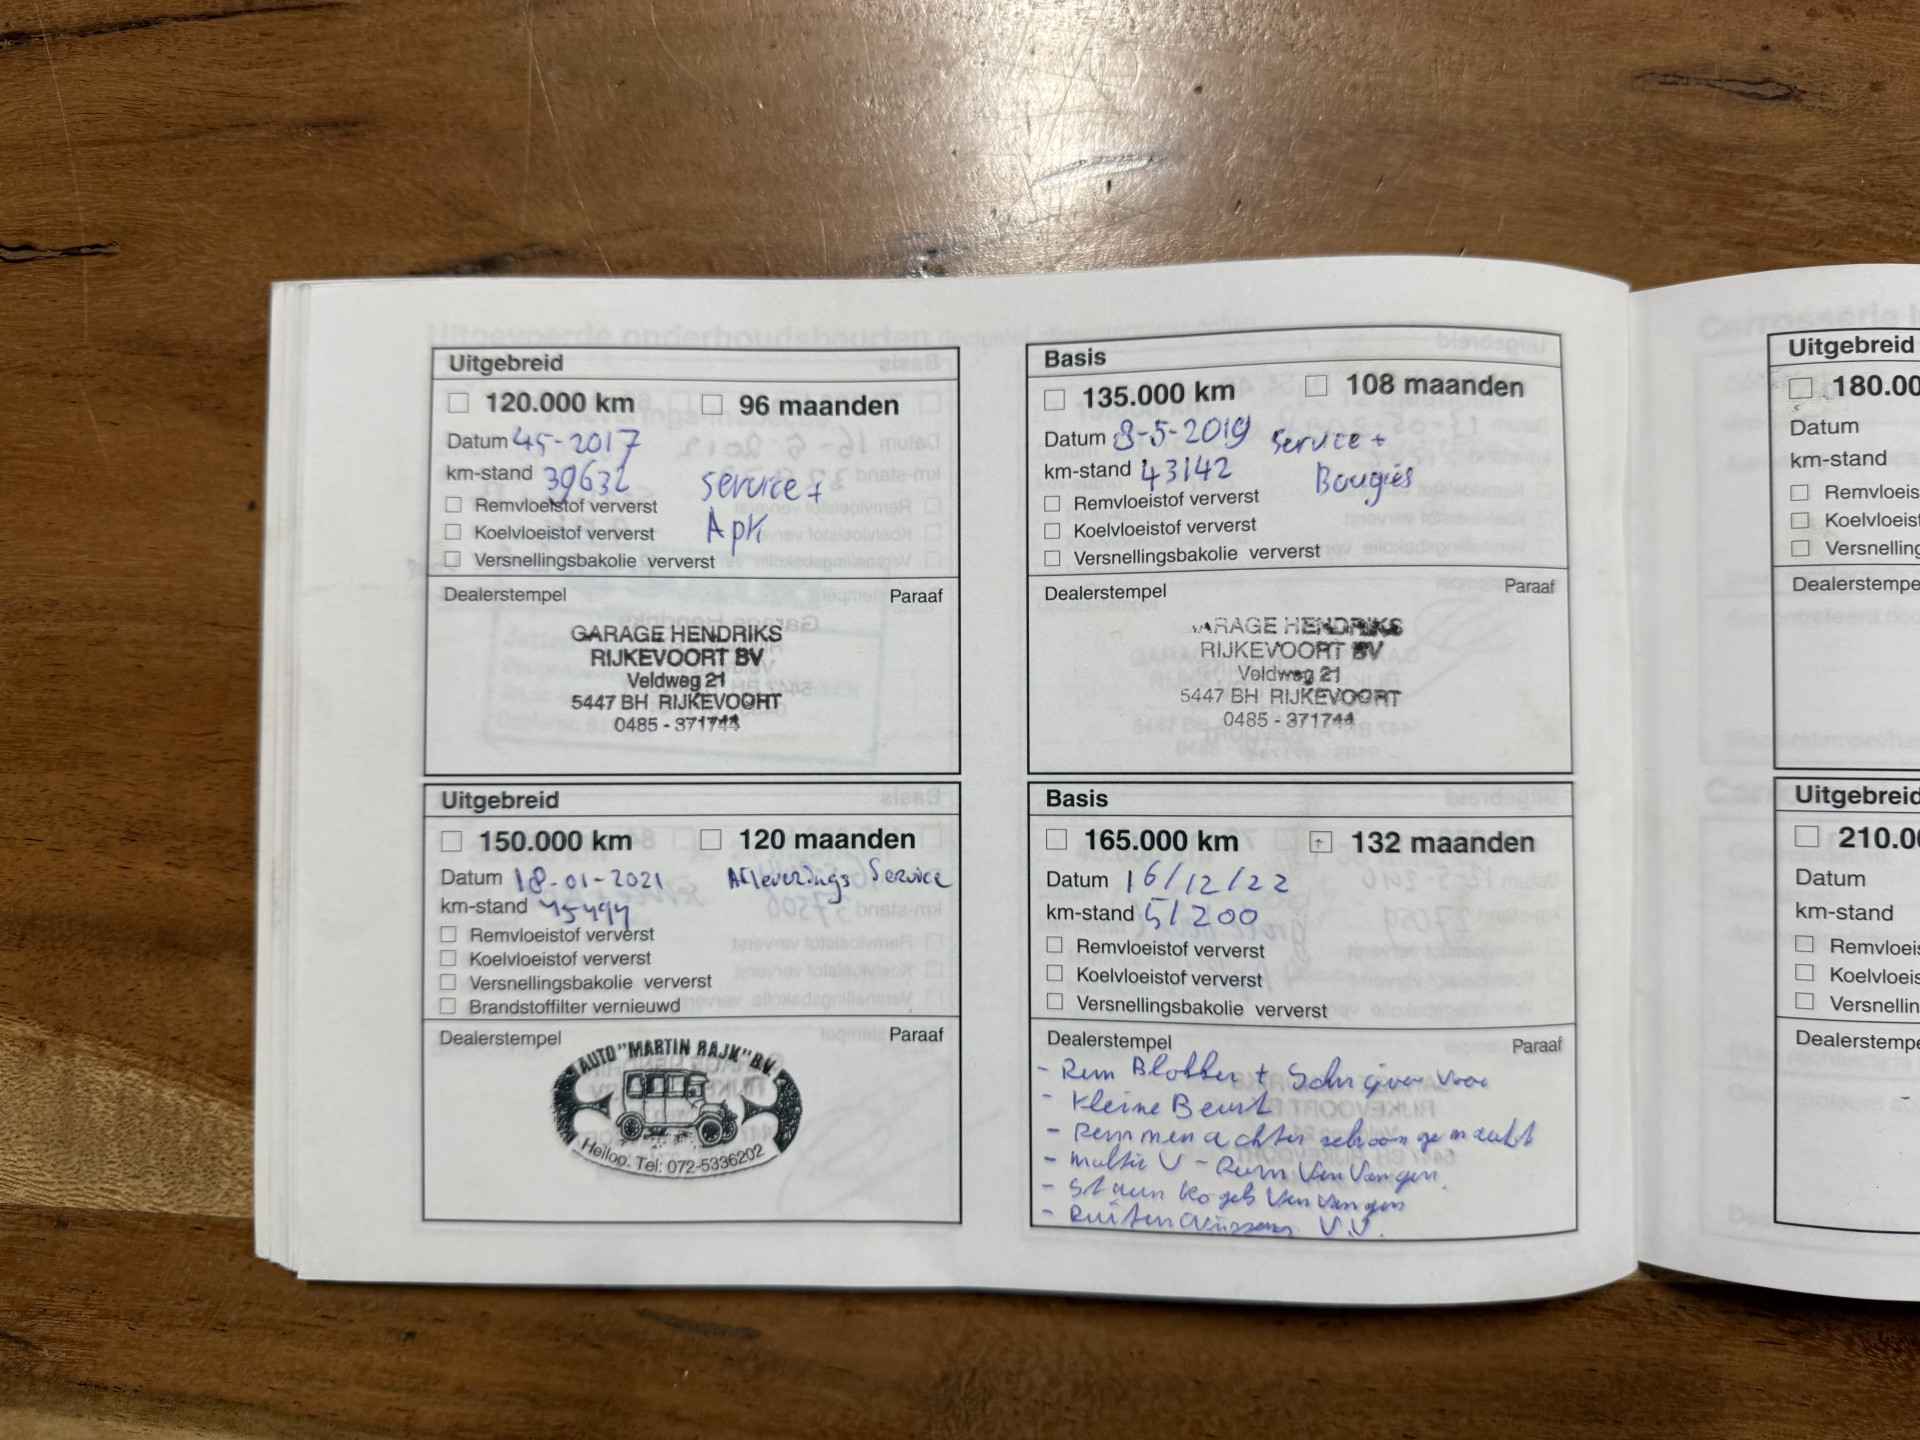 Uitgebreid
120.000 km 96 maanden
Datum 45-2017
km-stand 39632 service +
Remvloeistof ververst
Koelvloeistof ververst Apk
Versnellingsbakolie ververst
Dealerstempel Paraaf
GARAGE HENDRIKS
RIJKEVOORT BV
Veldweg 21
5447 BH RIJKEVOORT
0485 - 371744
Basis
135.000 km 108 maanden
Datum 8-5-2019 service +
km-stand 43142 Bougies
Remvloeistof ververst
Koelvloeistof ververst
Versnellingsbakolie ververst
Dealerstempel Paraaf
GARAGE HENDRIKS
RIJKEVOORT BV
Veldweg 21
5447 BH RIJKEVOORT
0485 - 371744
Uitgebreid
150.000 km 120 maanden
Datum 18-01-2021 Afleverings Service
km-stand 45494
Remvloeistof ververst
Koelvloeistof ververst
Versnellingsbakolie ververst
Brandstoffilter vernieuwd
Dealerstempel Paraaf
AUTO "MARTIN RAJK" B.V.
Heiloo. Tel: 072-5336202
Basis
165.000 km 132 maanden
Datum 16/12/22
km-stand 51200
Remvloeistof ververst
Koelvloeistof ververst
Versnellingsbakolie ververst
Dealerstempel Paraaf
- Rem Blokken + Schijven voor
- Kleine Beurt
- Remmen achter schoongemaakt
- Multi V - Riem Vervangen.
- Stuurkogels Vervangen
- Ruitenwissers V.V.
Uitgebreid
180.00
Datum
km-stand
Remvloeis
Koelvloeist
Versnelling
Dealerstempe
Uitgebreid
210.00
Datum
km-stand
Remvloeis
Koelvloeis
Versnellin
Dealerstempe